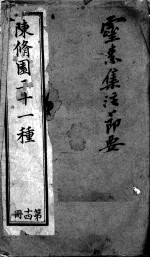 靈素集注節要
陳脩園二十一種
第十四冊